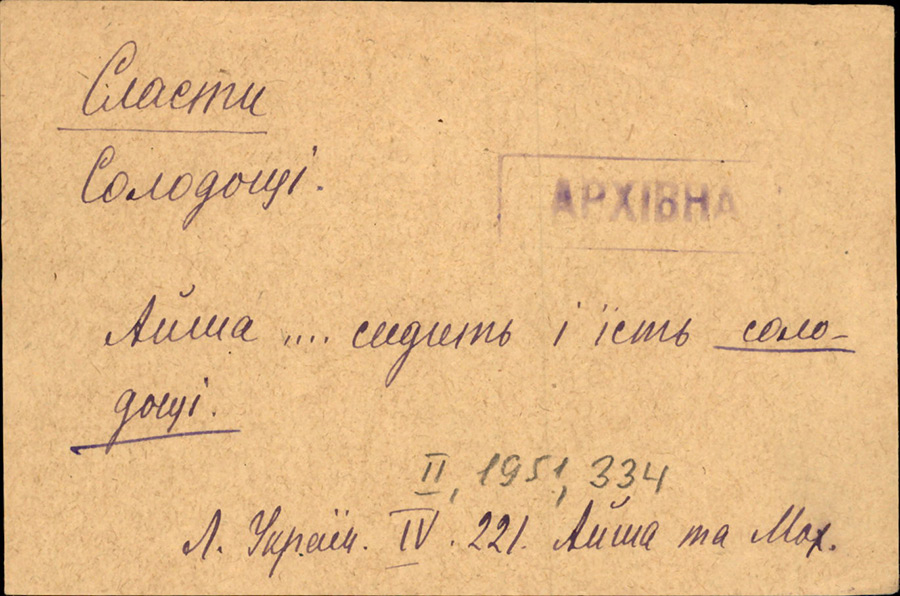 Сласти
Солодощі.
АРХІВНА
Айша .... сидить і їсть соло-
дощі.
II, 1951, 334
Л. Україн. IV. 221. Айша та Мох.